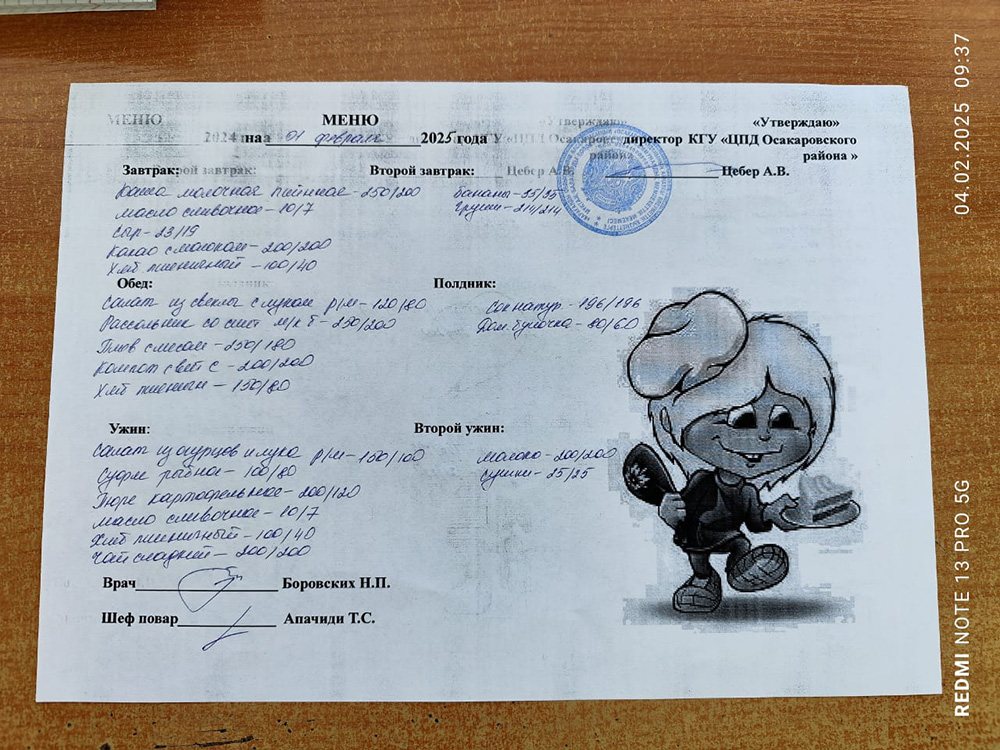 МЕНЮ
МЕНЮ
«Утверждаю»
2024
на 01 февраля 2025 года
директор КГУ «ЦПД Осакаровского
района »
Цебер А.В.
Завтрак:
Второй завтрак:
Каша молочная пшённая - 250/200
масло сливочное - 10/7
Сыр - 23/19
Какао с молоком - 200/200
Хлеб пшеничный - 100/40
бананы - 35/35
Груши - 214/214
Обед:
Полдник:
Салат из свеклы с луком р/м - 120/80
Рассольник со смет м/к б - 250/200
Плов с мясом - 250/180
Компот с вит с - 200/200
Хлеб пшеничн - 150/80
Сок натур - 196/196
Дом. булочка - 80/60
Ужин:
Второй ужин:
Салат из огурцов и лука р/м - 150/100
Суфле рыбное - 100/80
Пюре картофельное - 200/120
масло сливочное - 10/7
Хлеб пшеничный - 100/40
Чай сладкий - 200/200
молоко - 200/200
Сушки - 25/25
Врач Боровских Н.П.
Шеф повар Апачиди Т.С.
04.02.2025 09:37
REDMI NOTE 13 PRO 5G